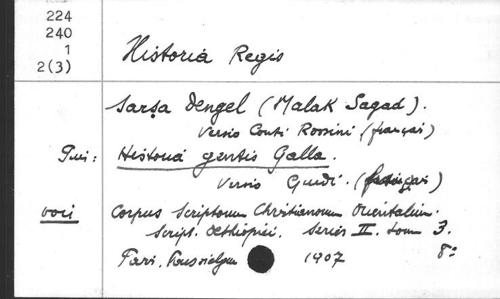 224
240
1
2(3)
Historia Regis
Sarṣa Dengel (Malak Sagad).
Versio Conti Rossini (français)
Puis: Historia gentis Galla.
Versio Guidi. (français)
voci Corpus Scriptorum Christianorum Orientalium.
Script. Aethiopici. Series II. tom 3.
Paris. Poussielgue 1907 8°